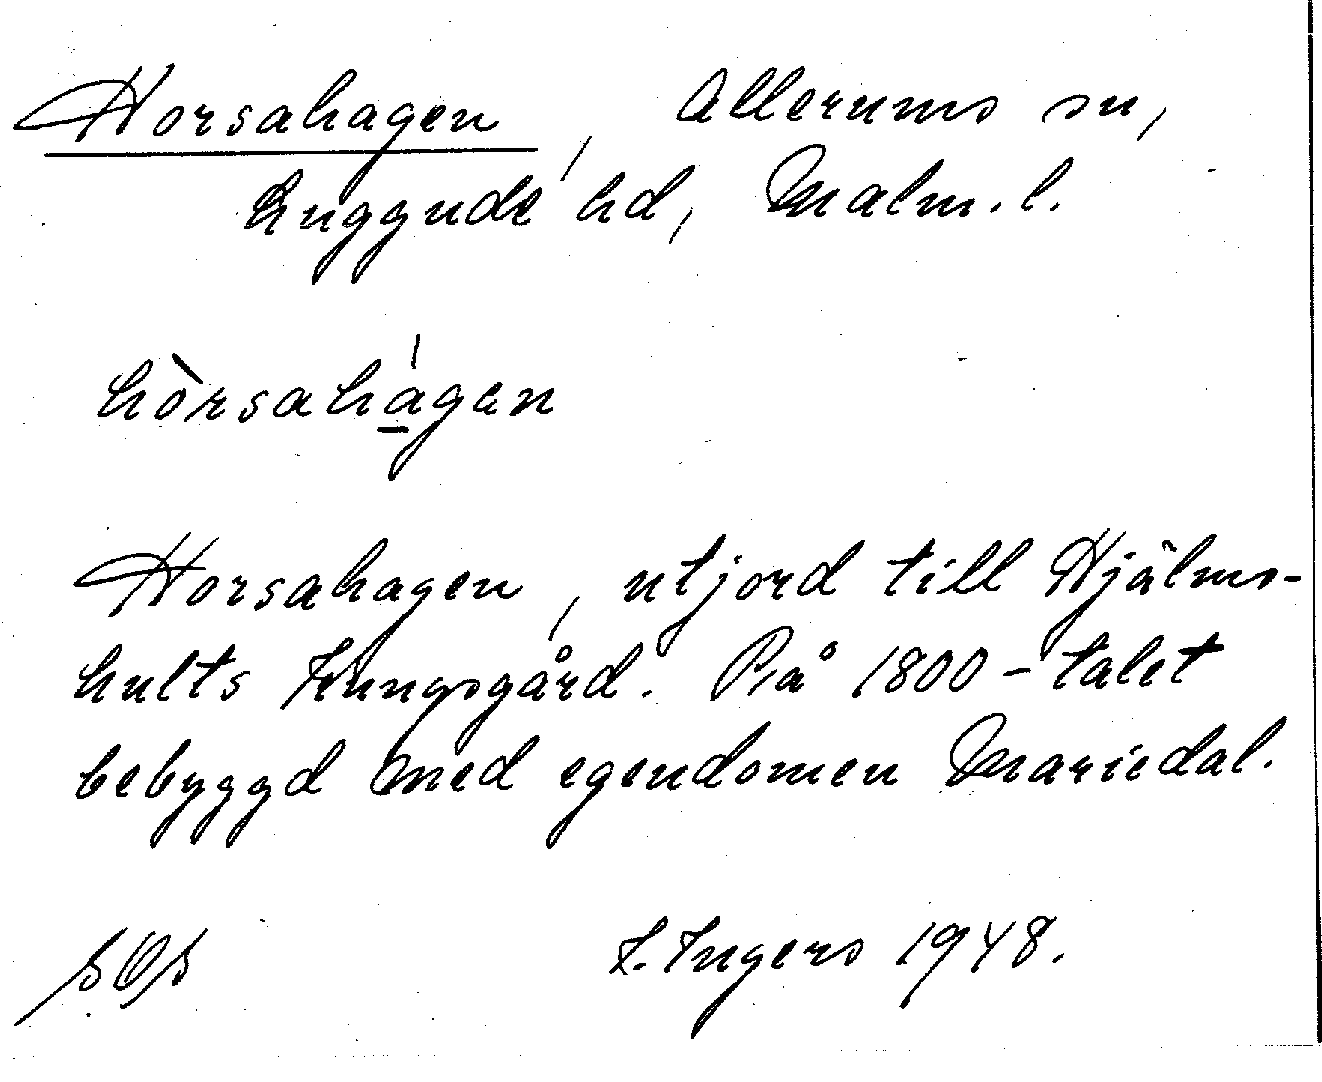 Horsahagen, Allerums sn,
Luggude hd, Malm. l.
hòrsahágen
Horsahagen, utjord till Hjälms-
hults Kungsgård. På 1800-talet
bebyggd med egendomen Mariedal.
I. Ingers 1948.